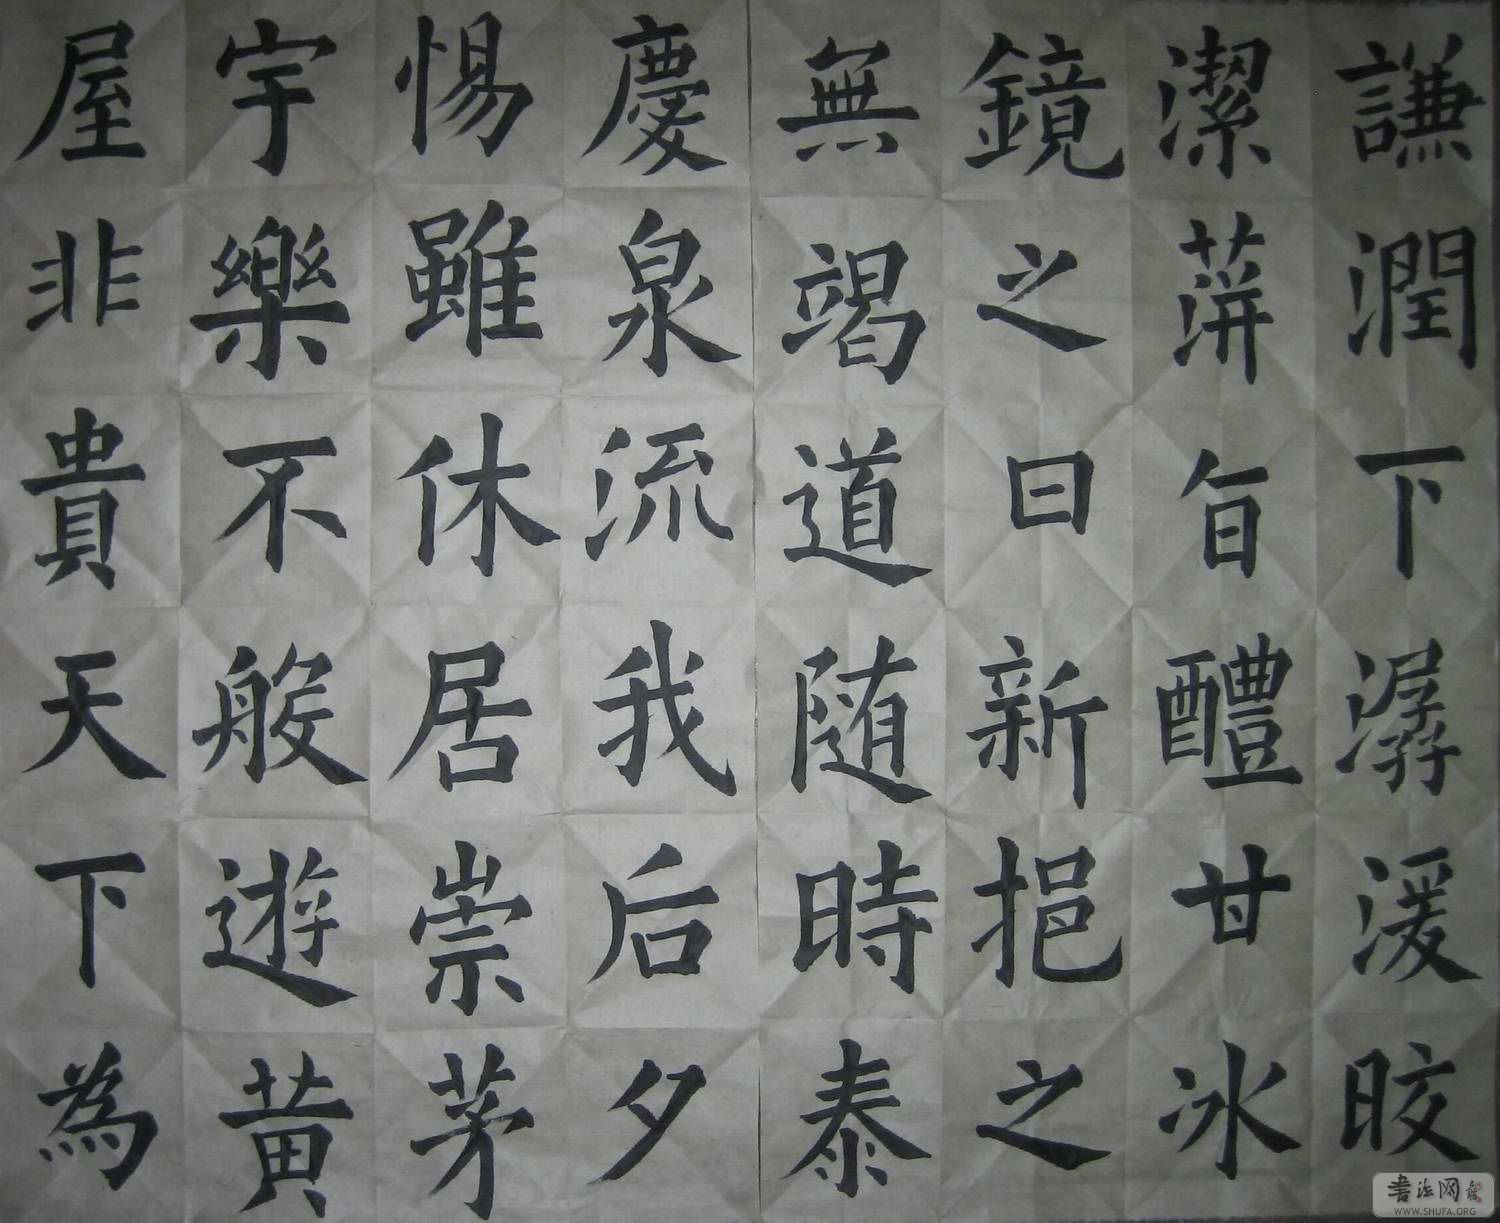 謙潤下潺湲皎
潔蓱旨醴甘冰
鏡之日新挹之
無竭道随時泰
慶泉流我后夕
惕雖休居崇茅
宇樂不般遊黄
屋非貴天下為
書法网
WWW.SHUFA.ORG